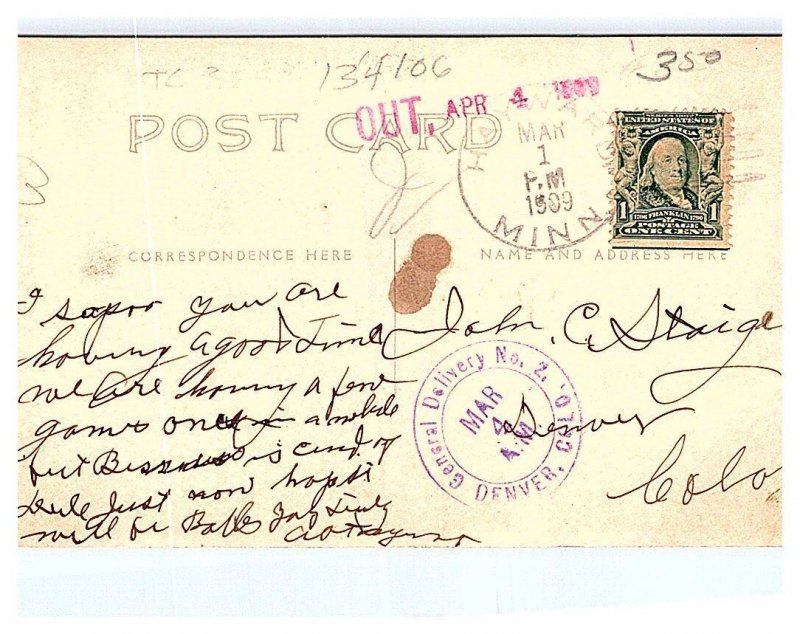 134106
350
OUT, APR 4 1909
POST CARD
HAYWARD
MAR
1
P.M
1909
MINN
SERIES 1902
UNITED STATES OF
AMERICA
1 1706 FRANKLIN 1790 1
POSTAGE
ONE CENT
CORRESPONDENCE HERE
NAME AND ADDRESS HERE
I sapos you are
having a good time
we are having a few
games onct in a while
but Bissnes is cind of
Just now
will be
John. C. Staige
Denver
Colo
General Delivery No. 2.
MAR
4
A.M.
DENVER, COLO.